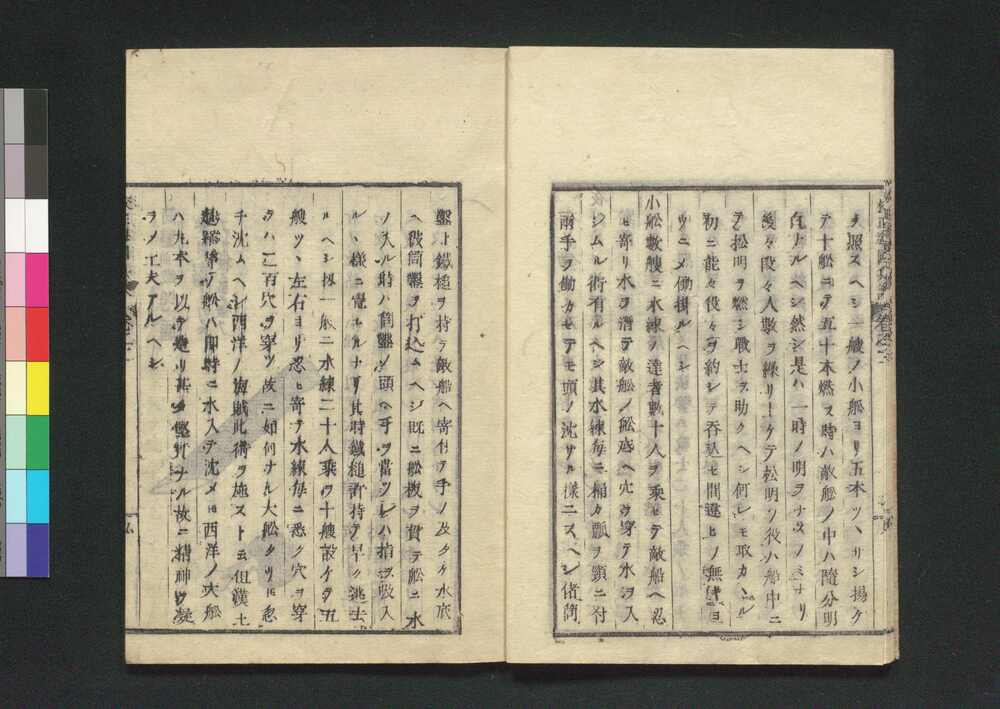 ヲ照スヘシ一艘ノ小船ヨリ五本ツヽサシ揚ケ
テ十船ニテ五十本燃ス時ハ敵船ノ中ハ隨分明
白ナルヘシ然シ是ハ一時ノ明ヲナスノミナリ
後々段々人數ヲ繰リ上ケテ松明ノ役ハ船中ニ
テ松明ヲ燃シ戰士ヲ助クヘシ何レモ取カヽル
初ニ能々役々ヲ約シテ呑込セ間違ヒノ無キヨ
ウニメ働掛ルヘシ
小船數艘ニ水練ノ達者數十人ヲ乗セテ敵船ヘ忍
ヒ寄リ水ヲ潛テ敵船ノ船底ヘ穴ヲ穿テ水ヲ入
シムル術有ルヘシ其水練毎ニ桶カ瓢ヲ頸ニ付
兩手ヲ働カセテモ頭ノ沈サル樣ニスヘシ偖筒
鑿ト鐵槌ヲ持テ敵船ヘ寄付ヲ手ノ及タケ水底
ヘ彼筒鑿ヲ打込ムヘシ既ニ船板ヲ貫テ船ニ水
ノ入ル時ハ筒鑿ノ頭ヘ手ヲ當ツレハ掌ヲ吸入
ルヽ樣ニ覺ユルナリ其時鐵槌許持テ早ク逃去
ルヘシ扨一艘ニ水練二十人乗ヲ十艘設ケヲ五
艘ツヽ左右ヨリ忍ヒ寄テ水練毎ニ悉ク穴ヲ穿
ラハ二百穴ヲ穿ツ故ニ如何ナル大船タリ𪜈忽
チ沈ムヘシ西洋ノ海賊此術ヲ施スト云但漢土
ノ船ハ即時ニ水入テ沈メ𪜈西洋ノ大船
ハ九木ヲ以テ造リ甚タ堅實ナル故ニ精神ヲ凝
ラメ工夫アルヘシ